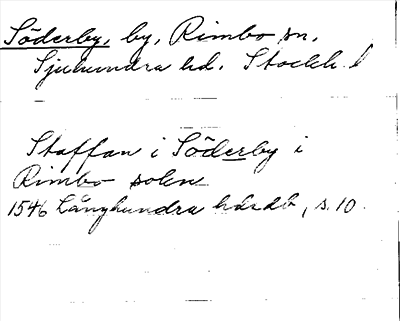 Söderby, by, Rimbo sn,
Sjuhundra hd. Stockh. l
Staffan i Söderby i
Rimbo sokn
1546 Långhundra hdsdb, s. 10.